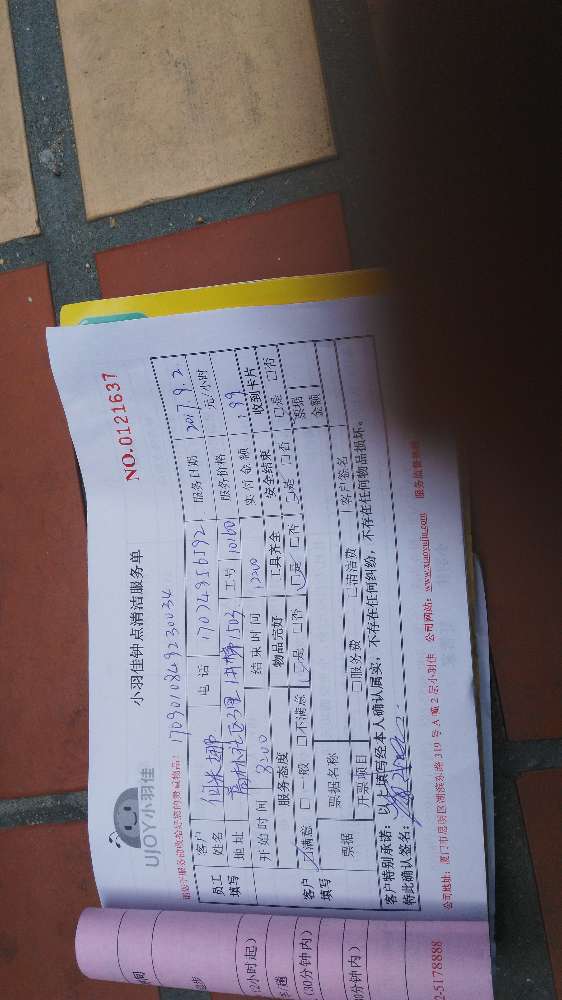 UJOY小羽佳
小羽佳钟点清洁服务单
NO.0121637
1709010849230034
员工填写
客户姓名 何米娜 电话 17074956592 服务日期 2017.9.2
地址 工号 10160 服务价格 元/小时
开始时间 8:00 结束时间 12:00 实付金额 99
服务态度 物品完好 工具齐全 安全结束 收到卡片
客户填写
☑满意 □一般 □不满意 ☑是 □否 ☑是 □否 □是 □否 □是 □否
票据 票据名称 □服务费 □清洁费 票据金额
开票项目 客户签名
客户特别承诺：以上填写经本人确认属实，不存在任何纠纷，不存在任何物品损坏。
特此确认签名：
公司地址：厦门市思明区湖滨东路319号A幢2层小羽佳 公司网站：www.xiaoyujia.com 服务监督热线
2小时起）
（30分钟内）
0分钟内）
2-5178888